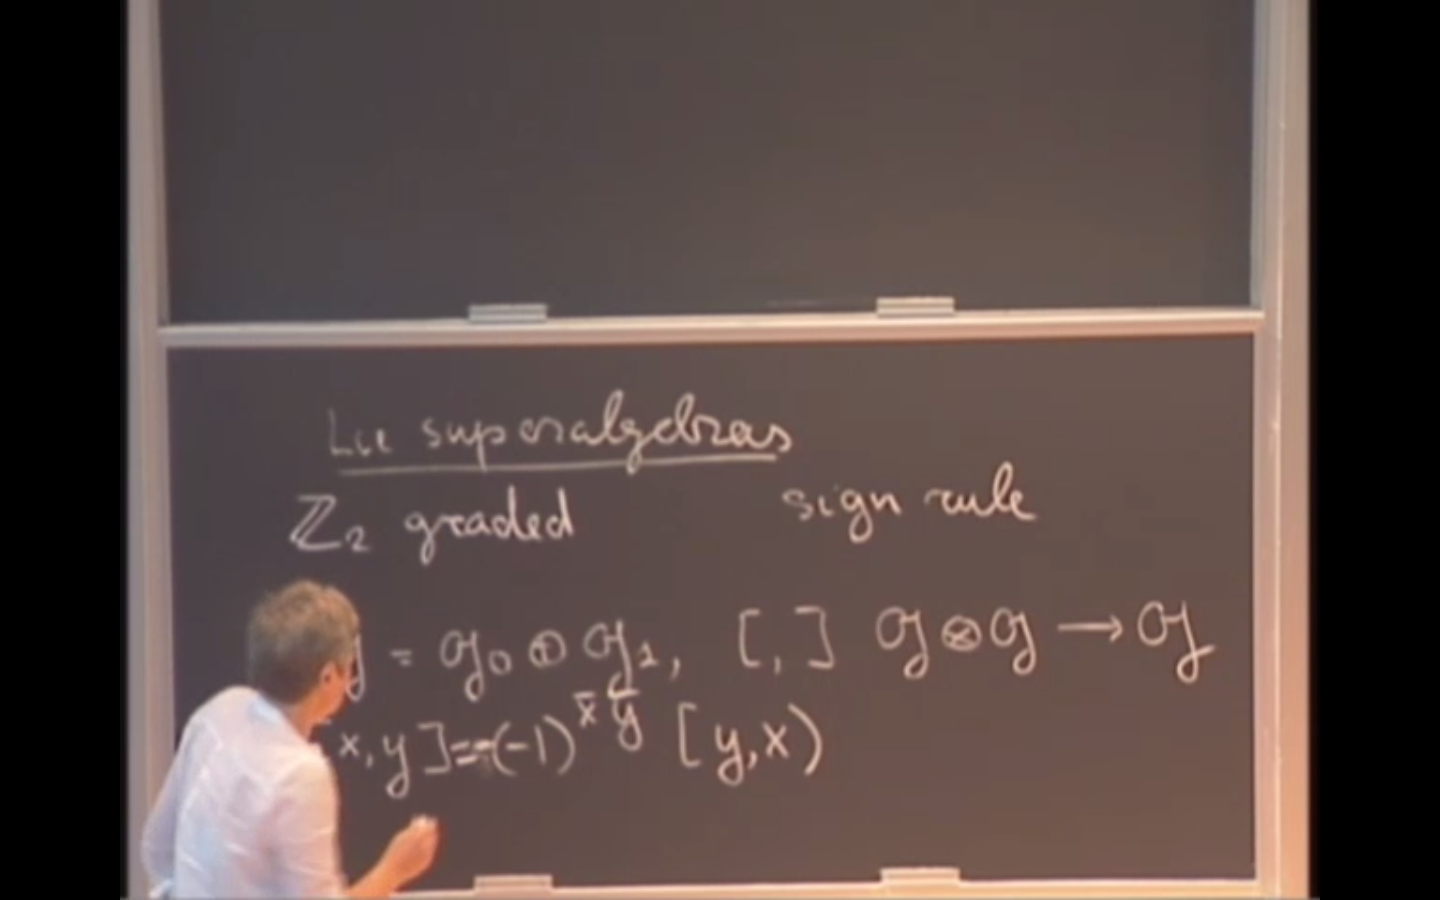 Lie superalgebras
ℤ₂ graded sign rule
g = g₀ ⊕ g₁, [ , ] g ⊗ g → g
x, y] = -(-1)^{x̄ ȳ} [y, x)